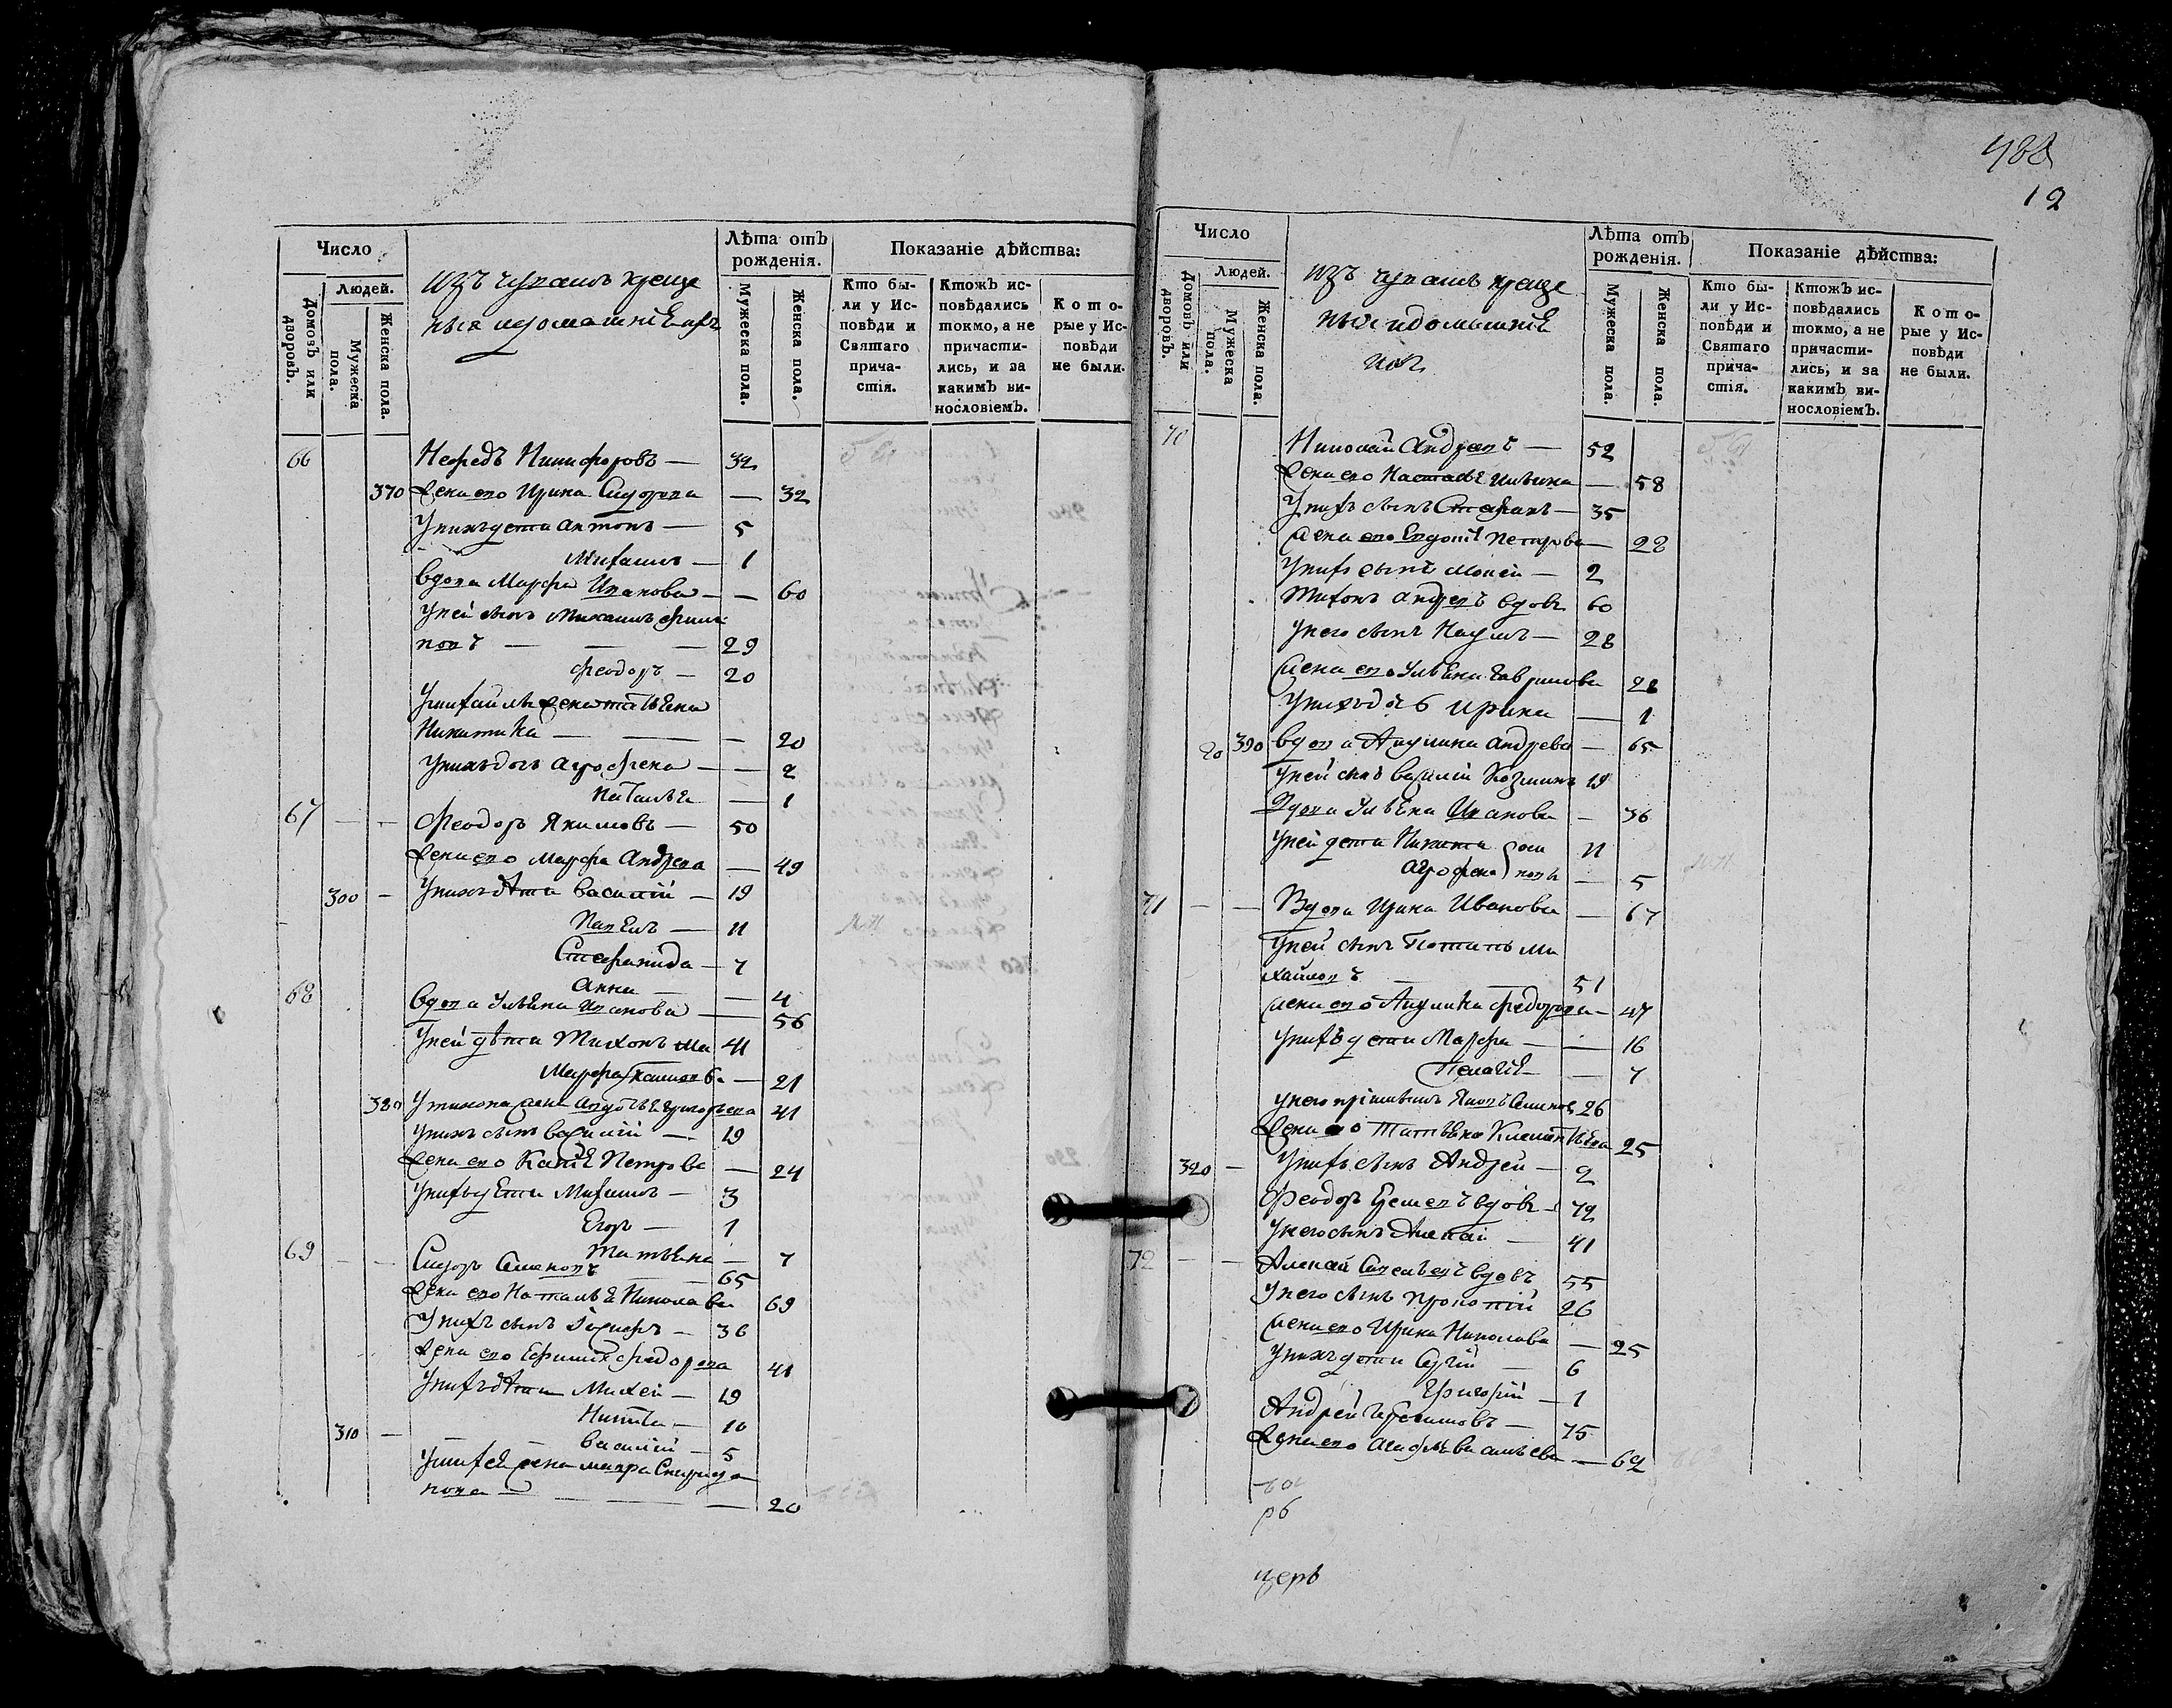 Число
Людей.
Домовъ или дворовъ.
Мужеска пола.
Женска пола.
изъ чувашъ креще
ныя идомашніе ихъ
Лѣта отъ рожденія.
Мужеска пола.
Женска пола.
Показаніе дѣйства:
Кто бы-
ли у Ис-
повѣди и
Святаго
прича-
стія.
Ктожъ ис-
повѣдались
токмо, а не
причасти-
лись, и за
какимъ ви-
нословіемъ.
Кото-
рые у Ис-
повѣди
не были.
66 Нефедъ Никифоровъ — 32
370 Жена его Ирина Сидорова — 32
Унихъ дети Антонъ — 5
Михаилъ — 1
Вдова Марфа Иванова — — 60
Уней сынъ Михаилъ Фили
повъ — — — 29
Феодоръ — 20
Умихайлы жена Татьяна
Никитина — — — 20
Унихъ дочь Агрофена — — 2
Наталья — 1
67 — — Феодоръ Якимовъ — 50
Жена его Марфа Андреева — 49
300 — Унихъ дети Василій — 19
Павелъ — 11
Стефанида — 7
Анна — — 4
68 Вдова Ульяна Иванова — 56
Уней дѣти Тихонъ Ми 41
Марфа хайловы — 21
380 Утихона жена Авдотья Григорьева 41
Унихъ сынъ Василій — 19
Жена его Петрова — 24
Унихъ дети Михаилъ — 3
Егоръ — 1
Татьяна — 7
69 — — Сидоръ Семеновъ — 65
Жена его Наталья Николаева 69
Унихъ сынъ Іосифъ — 36
Жена его Ефимія Федорова 41
Унихъ дети Михей — 19
Никита — 10
310 — — Василій — 5
Умихея жена Мавра Спиридо
нова — — — 20
488
12
Число
Людей.
Домовъ или дворовъ.
Мужеска пола.
Женска пола.
изъ чувашъ креще
ныя идомашніе
ихъ
Лѣта отъ рожденія.
Мужеска пола.
Женска пола.
Показаніе дѣйства:
Кто бы-
ли у Ис-
повѣди и
Святаго
прича-
стія.
Ктожъ ис-
повѣдались
токмо, а не
причасти-
лись, и за
какимъ ви-
нословіемъ.
Кото-
рые у Ис-
повѣди
не были.
70 Николай Андреевъ — 52
Жена его Наталья Ильина — 58
Унихъ сынъ Стефанъ — 35
Жена его Евдокія Петрова — 28
Унихъ сынъ Мокей — 2
Тихонъ Андреевъ вдовъ 60
Унего сынъ Наумъ — 28
Жена его Ульяна Гаврилова 28
Унихъ дочь Ирина — 1
20 390 Вдова Акулина Андреева — 65
Уней сынъ Василій Козминъ 19
Вдова Ульяна Иванова — 36
Уней дети Никита 11
Агрофена — 5
71 — — Вдова Ирина Иванова — 67
Уней сынъ Потапъ Ми
хайловъ — 51
Жена его Акулина Федорова — 47
Унихъ дети Марфа — — 16
Пелагія — — 7
Унего пріимышъ Яковъ Семеновъ 26
Жена его Татьяна Клементьева 25
320 — Унихъ сынъ Андрей — 2
Феодоръ Еремеевъ вдовъ — 72
Унего сынъ Алексѣй — 41
72 — — Алексѣй Савельевъ вдовъ 55
Унего сынъ Прокопій 26
Жена его Ирина Николаева — 25
Унихъ дети Сергій — 6
Григорій — 1
Андрей Герасимовъ — 75
Жена его Васильева — 62
рб
церъ